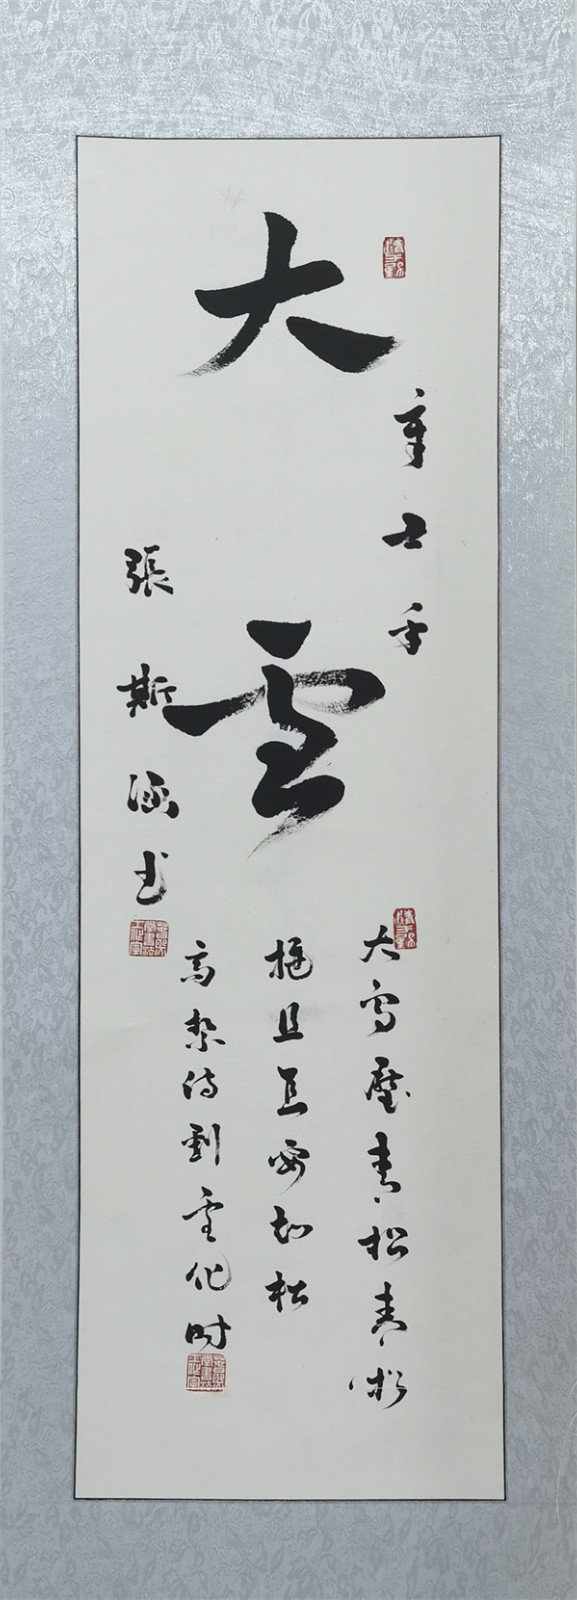 辛丑年
大雪
大雪壓青松青松
挺且直要知松
高潔待到雪化时
張斯涵书